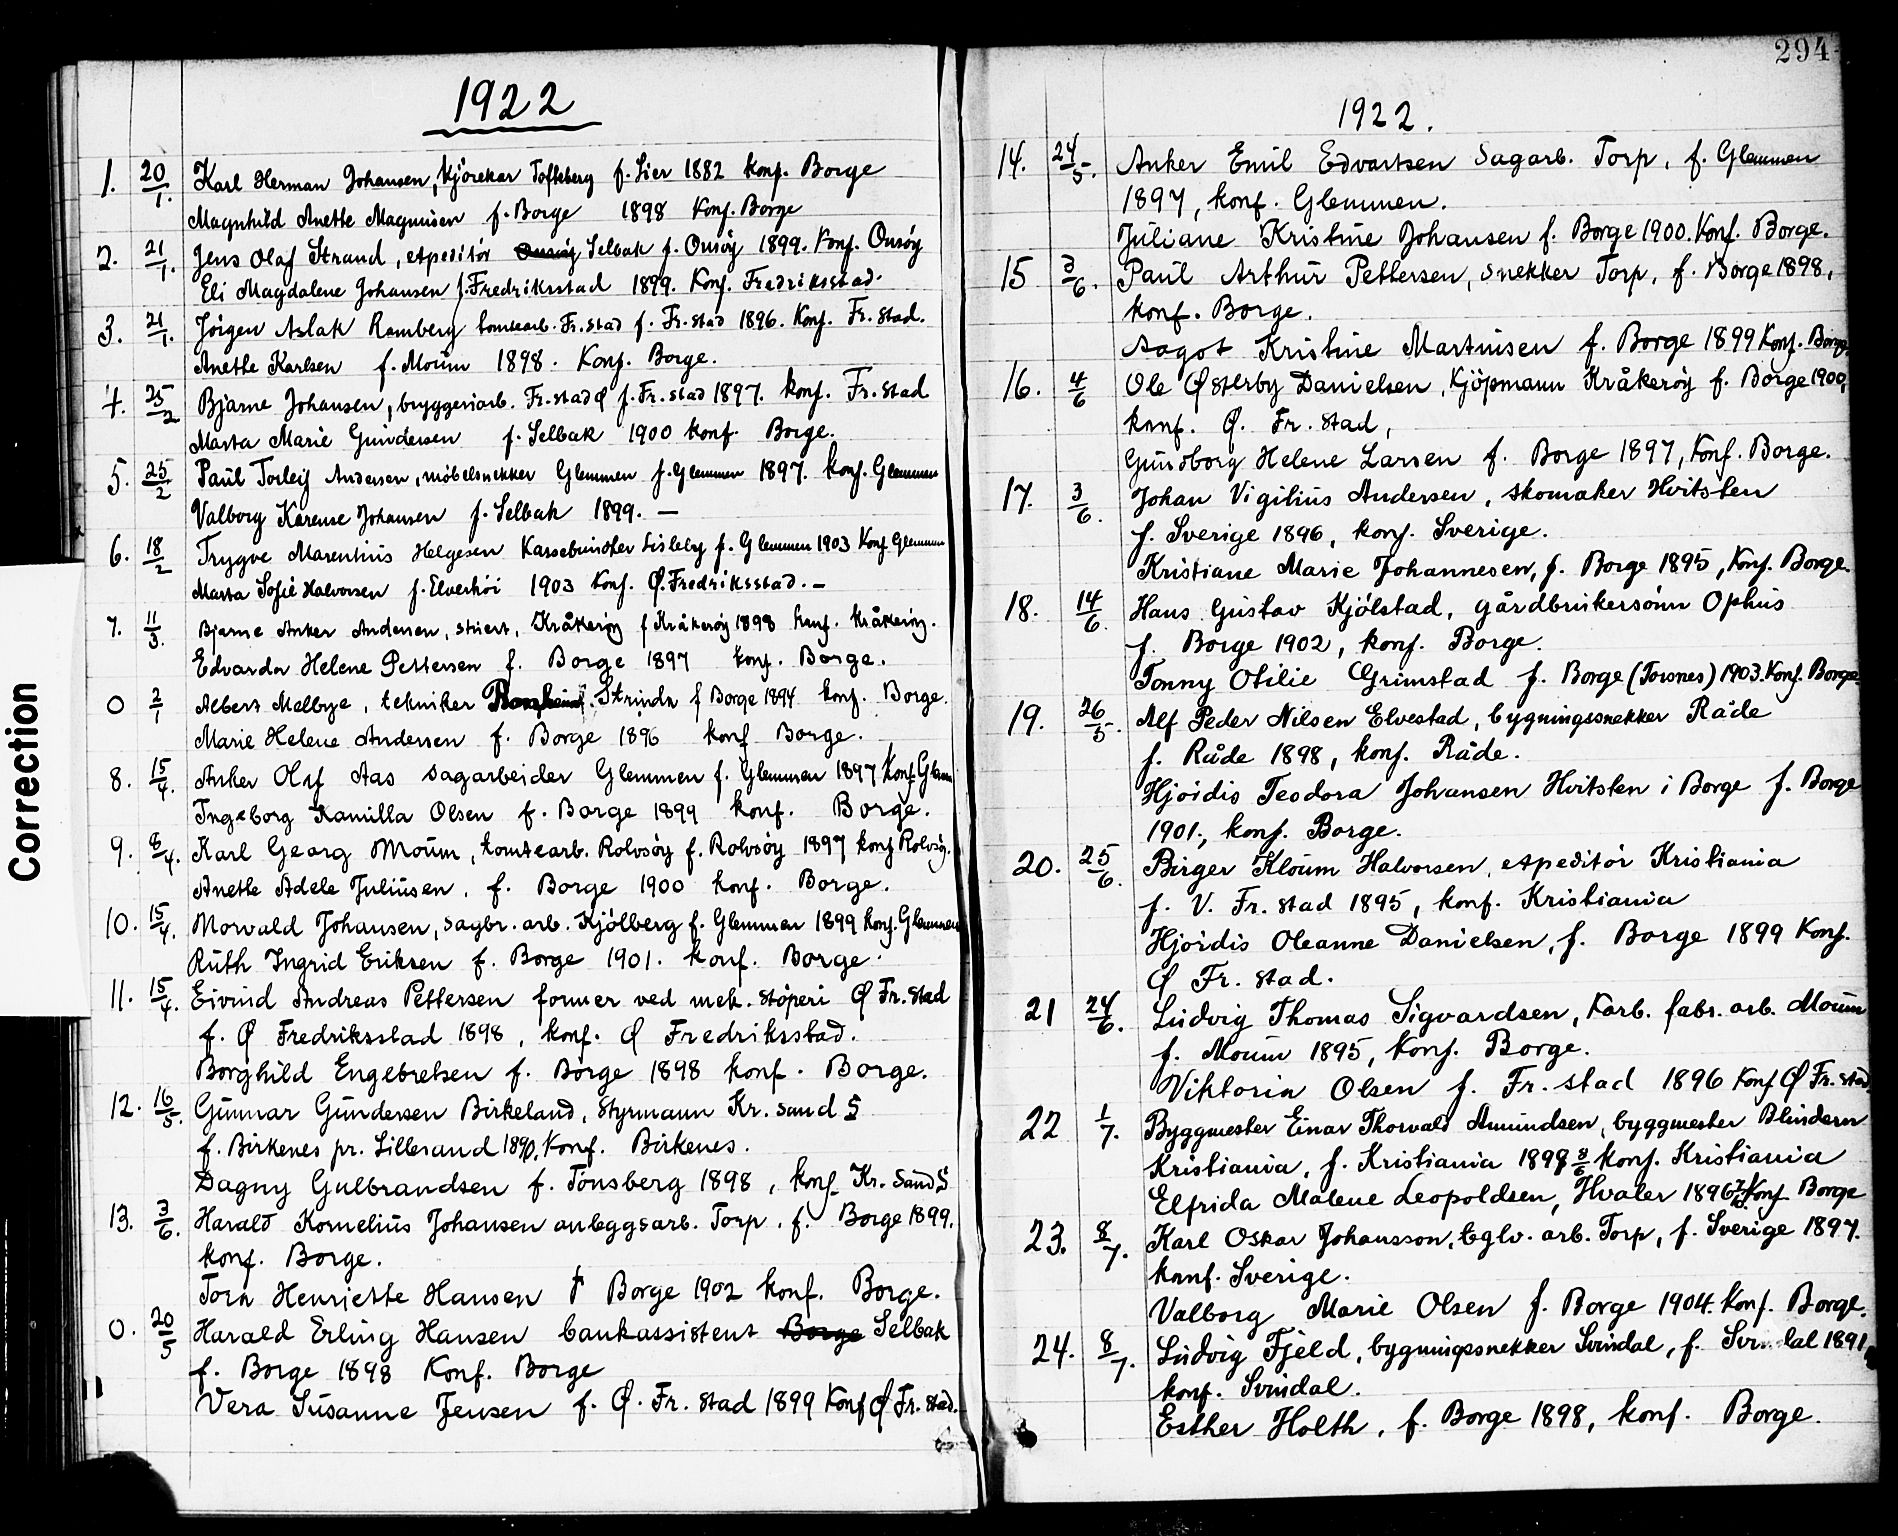 1922
1. 20/1. Karl Herman Johansen, kjörekar Tofteberg f. Lier 1882 konf. Borge
Magnhild Anette Magnusen f. Borge 1898 Konf. Borge
2. 21/1. Jens Olaf Strand, expeditör Onsöy Selbak f. Onsöy 1899. Konf. Onsöy
Eli Magdalene Johansen f. Fredriksstad 1899. Konf. Fredriksstad.
3. 21/1. Jörgen Aslak Ramberg tomtearb. Fr.stad f. Fr.stad 1896. Konf. Fr.stad.
Anette Karlsen f. Moum 1898. Konf. Borge.
4. 25/2 Bjarne Johansen, bryggeriarb. Fr.stad Ø f. Fr.stad 1897. konf. Fr.stad
Marta Marie Gundersen f. Selbak 1900 konf. Borge.
5. 25/2 Paul Torleif Andersen, möbelsnekker Glemmen f. Glemmen 1897. konf. Glemmen
Valborg Karense Johansen f. Selbak 1899. —
6. 18/2 Trygve Marentius Helgesen Kassebunder Lisleby f. Glemmen 1903 Konf. Glemmen
Marta Sofie Halvorsen f. Elverhöi 1903 Konf. Ø. Fredriksstad. —
7. 11/3. Bjarne Anker Andersen, stuert, Kråkeröy f Kråkeröy 1898 konf. Kråkeröy.
Edvarda Helene Pettersen f. Borge 1897 konf. Borge.
0 2/1 Albert Melbye, tekniker Strinda f Borge 1894 konf. Borge.
Marie Helene Andersen f. Borge 1896 konf Borge.
8. 15/4. Anker Olaf Aas sagarbeider Glemmen f. Glemmen 1897 Konf. Glem
Ingeborg Kamilla Olsen f. Borge 1899 konf. Borge.
9. 8/4. Karl Georg Moum, tomtearb. Rolvsöy f. Rolvsöy 1897 konf Rolvsöy.
Anette Adele Juliusen, f. Borge 1900 konf. Borge.
10. 15/4. Morvald Johansen, sagbr. arb. Kjölberg f. Glemmen 1899 konf. Glemmen
Ruth Ingrid Eriksen f. Borge 1901. konf. Borge.
11. 15/4. Eivind Andreas Pettersen former ved mek. stöperi Ø Fr.stad
f. Ø Fredriksstad 1898, konf. Ø Fredriksstad.
Borghild Engebretsen f. Borge 1898 konf. Borge.
12. 16/5. Gunnar Gundersen Birkeland, Styrmann Kr.sand S
f. Birkenes pr. Lillesand 1890, Konf. Birkenes.
Dagny Gulbrandsen f. Tönsberg 1898, konf. Kr.sand S
13. 3/6. Harald Kornelius Johansen anleggsarb. Torp. f. Borge 1899.
konf. Borge.
Tora Henriette Hansen f Borge 1902 konf. Borge.
0. 20/5 Harald Erling Hansen bankassistent Borge Selbak
f. Borge 1898 Konf. Borge
Vera Susanne Jensen f. Ø. Fr.stad 1899 Konf Ø Fr.stad.
294
1922.
14. 24/5. Anker Emil Edvartsen Sagarb. Torp, f. Glemmen
1897, konf. Glemmen.
Juliane Kristine Johansen f. Borge 1900. Konf. Borge.
15 3/6. Paul Arthur Pettersen, snekker Torp, f. Borge 1898,
konf. Borge.
Aagot Kristine Martinsen f. Borge 1899 Konf. Borge
16. 4/6 Ole Østerby Danielsen, Kjöpmann Kråkeröy f. Borge 1900,
konf. Ø. Fr.stad,
Gundborg Helene Larsen f. Borge 1897, Konf. Borge.
17. 3/6. Johan Vigilius Andersen, skomaker Hvitsten
f. Sverige 1896, konf. Sverige.
Kristiane Marie Johannesen, f. Borge 1895, Konf. Borge.
18. 14/6 Hans Gustav Kjölstad, gårdbrukersönn Ophus
f. Borge 1902, konf. Borge.
Tonny Otilie Grimstad f. Borge (Torsnes) 1903. Konf. Borge.
19. 26/5. Alf Peder Nilsen Elvestad, bygningssnekker Råde
f. Råde 1898, konf. Råde.
Hjördis Teodora Johansen Hvitsten i Borge f. Borge
1901, konf. Borge.
20. 25/6. Birger Kloum Halvorsen, expeditör Kristiania
f. V. Fr.stad 1895, konf. Kristiania
Hjördis Oleanne Danielsen, f. Borge 1899 Konf.
Ø Fr.stad.
21 24/6. Ludvig Thomas Sigvardsen, Karb. fabr. arb. Moum
f. Moum 1895, Konf. Borge.
Viktoria Olsen f. Fr.stad 1896 Konf Ø Fr.stad
22 1/7. Byggmester Einar Thorvald Amundsen, byggmester Blindern
Kristiania, f. Kristiania 1898 konf. Kristiania
Elfrida Malene Leopoldsen, Hvaler 1896 Konf Borge
23. 8/7. Karl Oskar Johansson, teglv. arb. Torp, f. Sverige 1897.
konf. Sverige.
Valborg Marie Olsen f. Borge 1904. Konf. Borge.
24. 8/7. Ludvig Fjeld, bygningssnekker Svindal, f. Svindal 1891,
konf. Svindal.
Esther Holth, f. Borge 1898, konf. Borge.
Correction